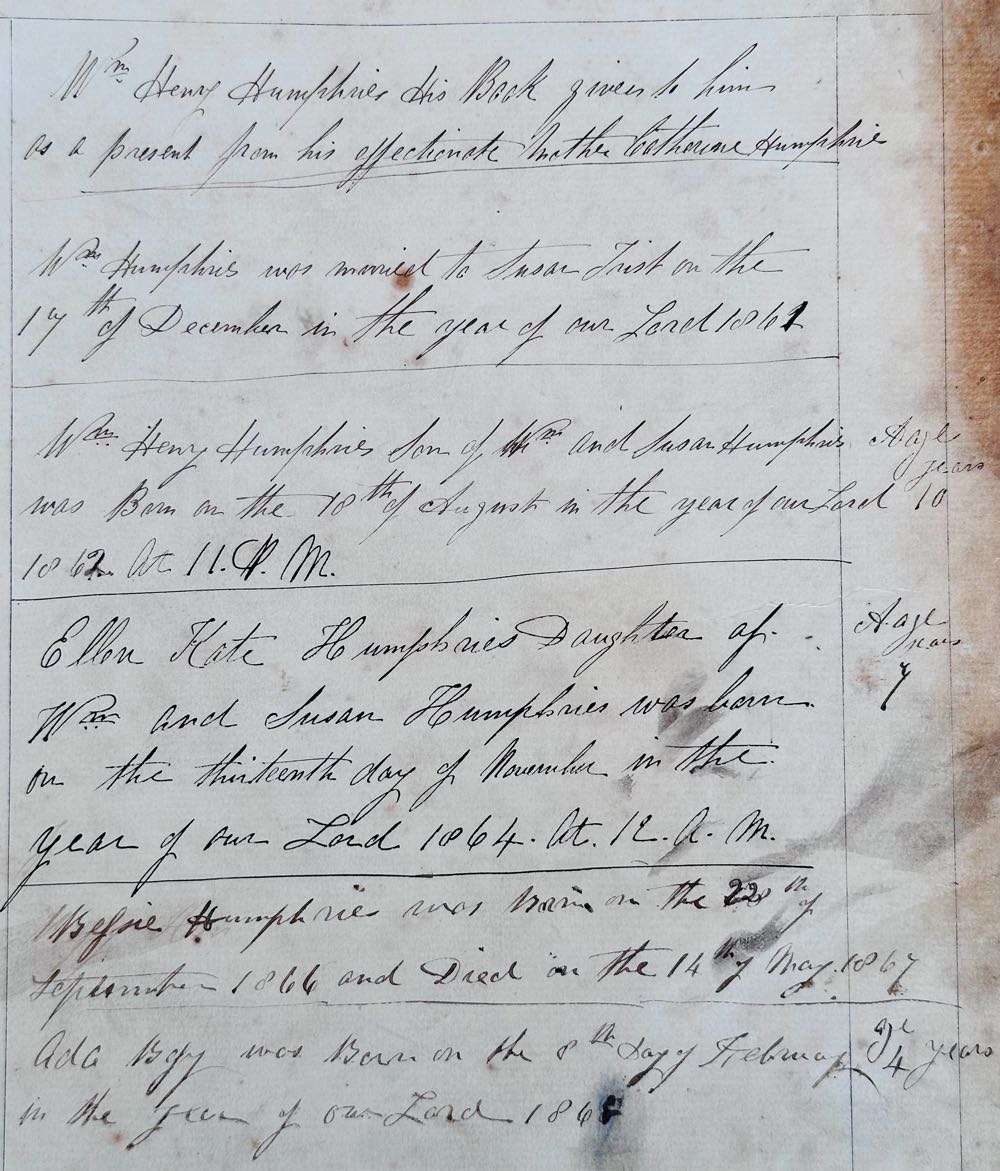 Wm Henry Humphries His Book given to him
as a present from his affectionate Mother Catherine Humphries
Wm Humphries was married to Susan Trist on the
17th of December in the year of our Lord 1861
Wm Henry Humphries Son of Wm and Susan Humphries Aage
years
was Born on the 18th of August in the year of our Lord 10
1862 At 11. P. M.
Ellen Kate Humphries Daughter of Aage
years
Wm and Susan Humphries was born 7
on the thirteenth day of November in the
year of our Lord 1864. At. 12. A. M.
Bessie Humphries was Born on the 22 th of
September 1866 and Died on the 14th of May. 1867
Ada was Born on the 8th Day of February age 4 years
in the year of our Lord